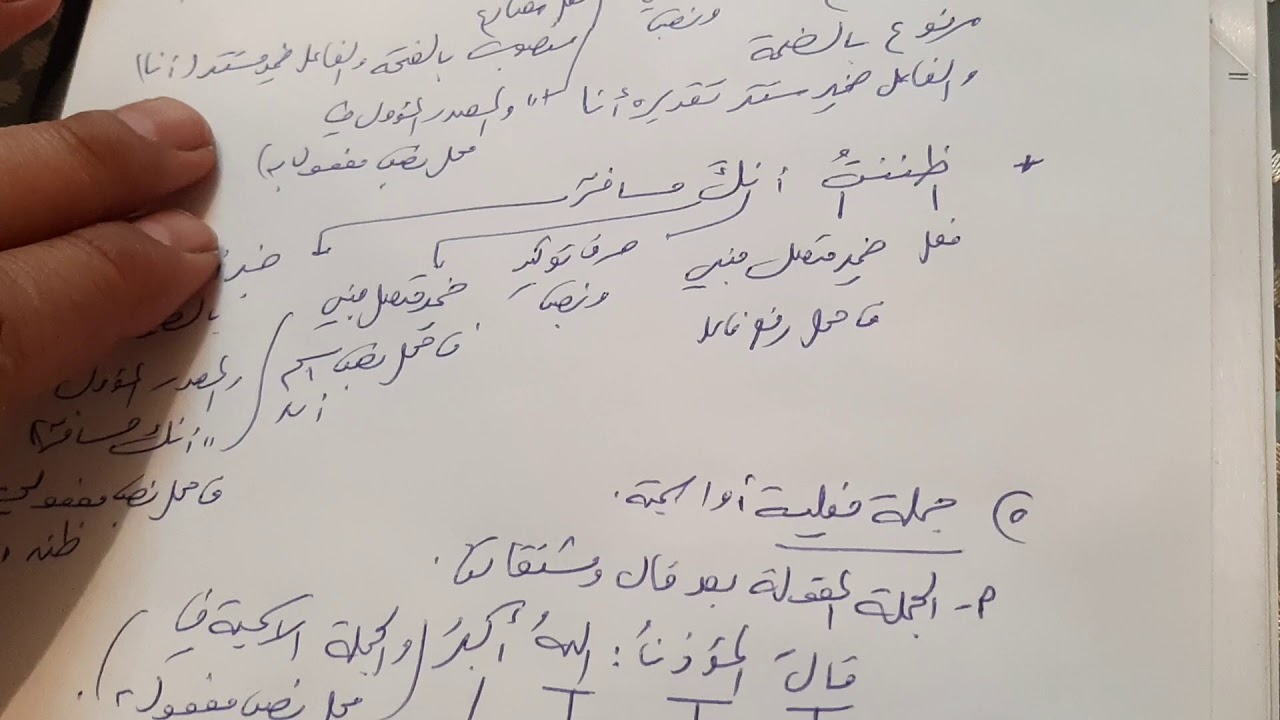 مرفوع بالضمة
ونصب
منصوب بالفتحة والفاعل ضمير مستتر (أنا)
والفاعل ضمير مستتر تقديره أنا
والمصدر المؤول في
محل نصب مفعول به)
* ظننتُ أنكَ مسافرٌ
فعل
ضمير متصل مبني
في محل رفع فاعل
حرف توكيد
ونصب
ضمير متصل مبني
في محل نصب اسم
أن
خبر
والمصدر المؤول
"أنك مسافر"
في محل نصب مفعول
ظن
٥) جملة فعلية أو اسمية.
م- الجملة المقولة بعد قال ومشتقاتها.
قالَ المؤذنُ: اللهُ أكبرُ (والجملة الاسمية في
محل نصب مفعول به).